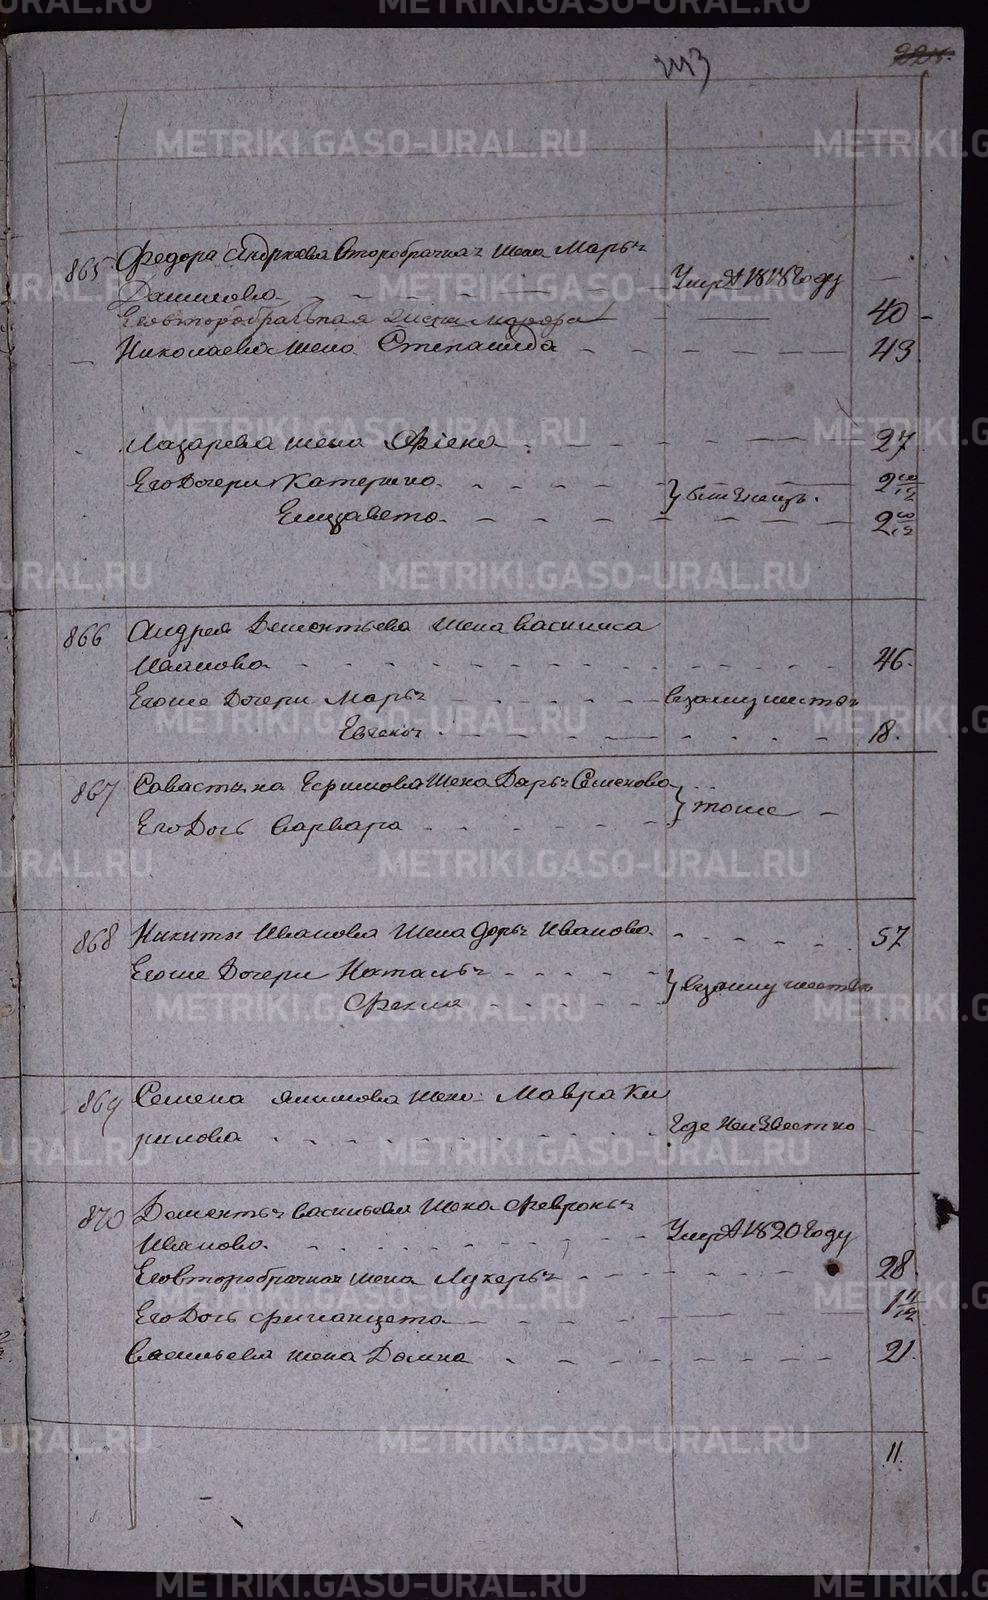 243
224.
865 Федора Андреева второбрачная жена Марья
Данилова - - - - Умре в 1818 Году —
Его второбрачная жена — 40 -
Николаева жена Степанида - - - - 43
Лазарева жена Фiена - - - - 27
Его Дочери Катерина - - - - 2 10/12
Елизавета - - - - 2 10/12
866 Андрея Дементьева жена Василиса
Иванова - - - - 46.
Егоже Дочери Марья - - - - взамужестве
Евгенья - - - - 18.
867 Савастьяна Ефимова жена Дарья Семенова
} тоже —
Его Дочь Варвара - - - -
868 Никиты Иванова жена Дарья Иванова - - - - 57
Егоже Дочери Наталья - - - -
} взамужестве
Фекла - - - -
869 Семена Якимова жена Мавра Ки
рилова - - - - Где Неизвестно —
870 Дементья Васильева жена Февронья
Иванова - - - - Умре в 1820 Году
Его второбрачная жена Лукерья - - - - 28.
Его Дочь - - - - 1 11/12
Васильева жена Домна - - - - 21.
11.
METRIKI.GASO-URAL.RU